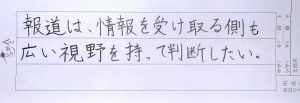 報道は、情報を受け取る側も
広い視野を持って判断したい。